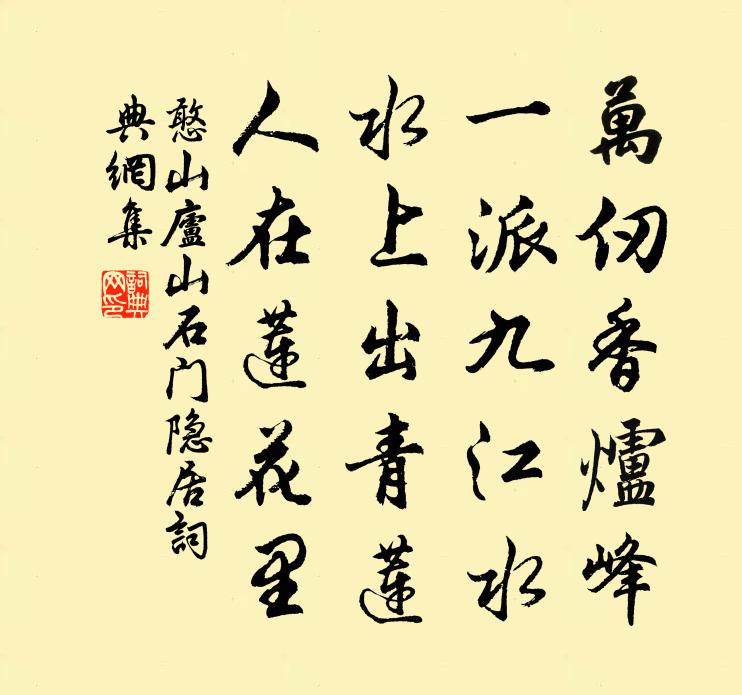 萬仞香爐峰
一派九江水
水上出青蓮
人在蓮花里
憨山廬山石门隐居詞
典網集
詞典网印